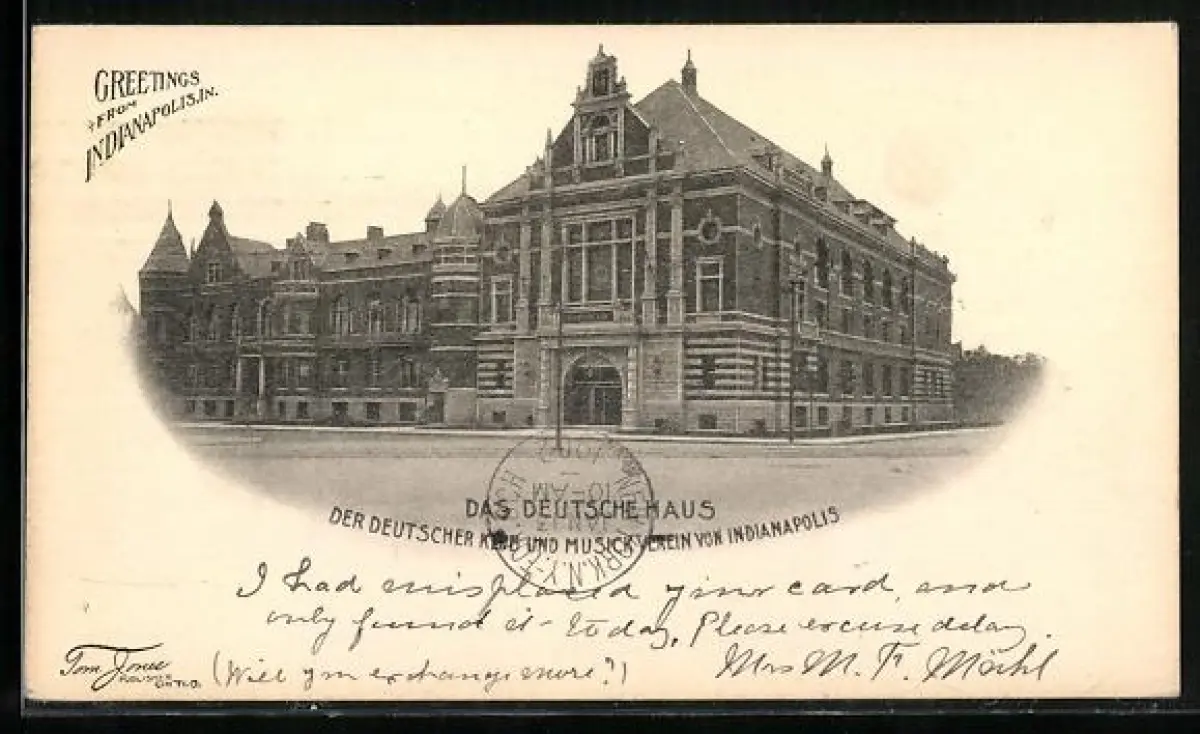 GREETINGS
FROM
INDIANAPOLIS, IN.
DAS DEUTSCHE HAUS
DER DEUTSCHER KLUB UND MUSICK VEREIN VON INDIANAPOLIS
10-AM
JAN 17
YORK, N.Y.
I had misplaced your card, and
only found it to day, Please excuse delay.
(Will you exchange more?)
Mrs M. F.
Tom Jones